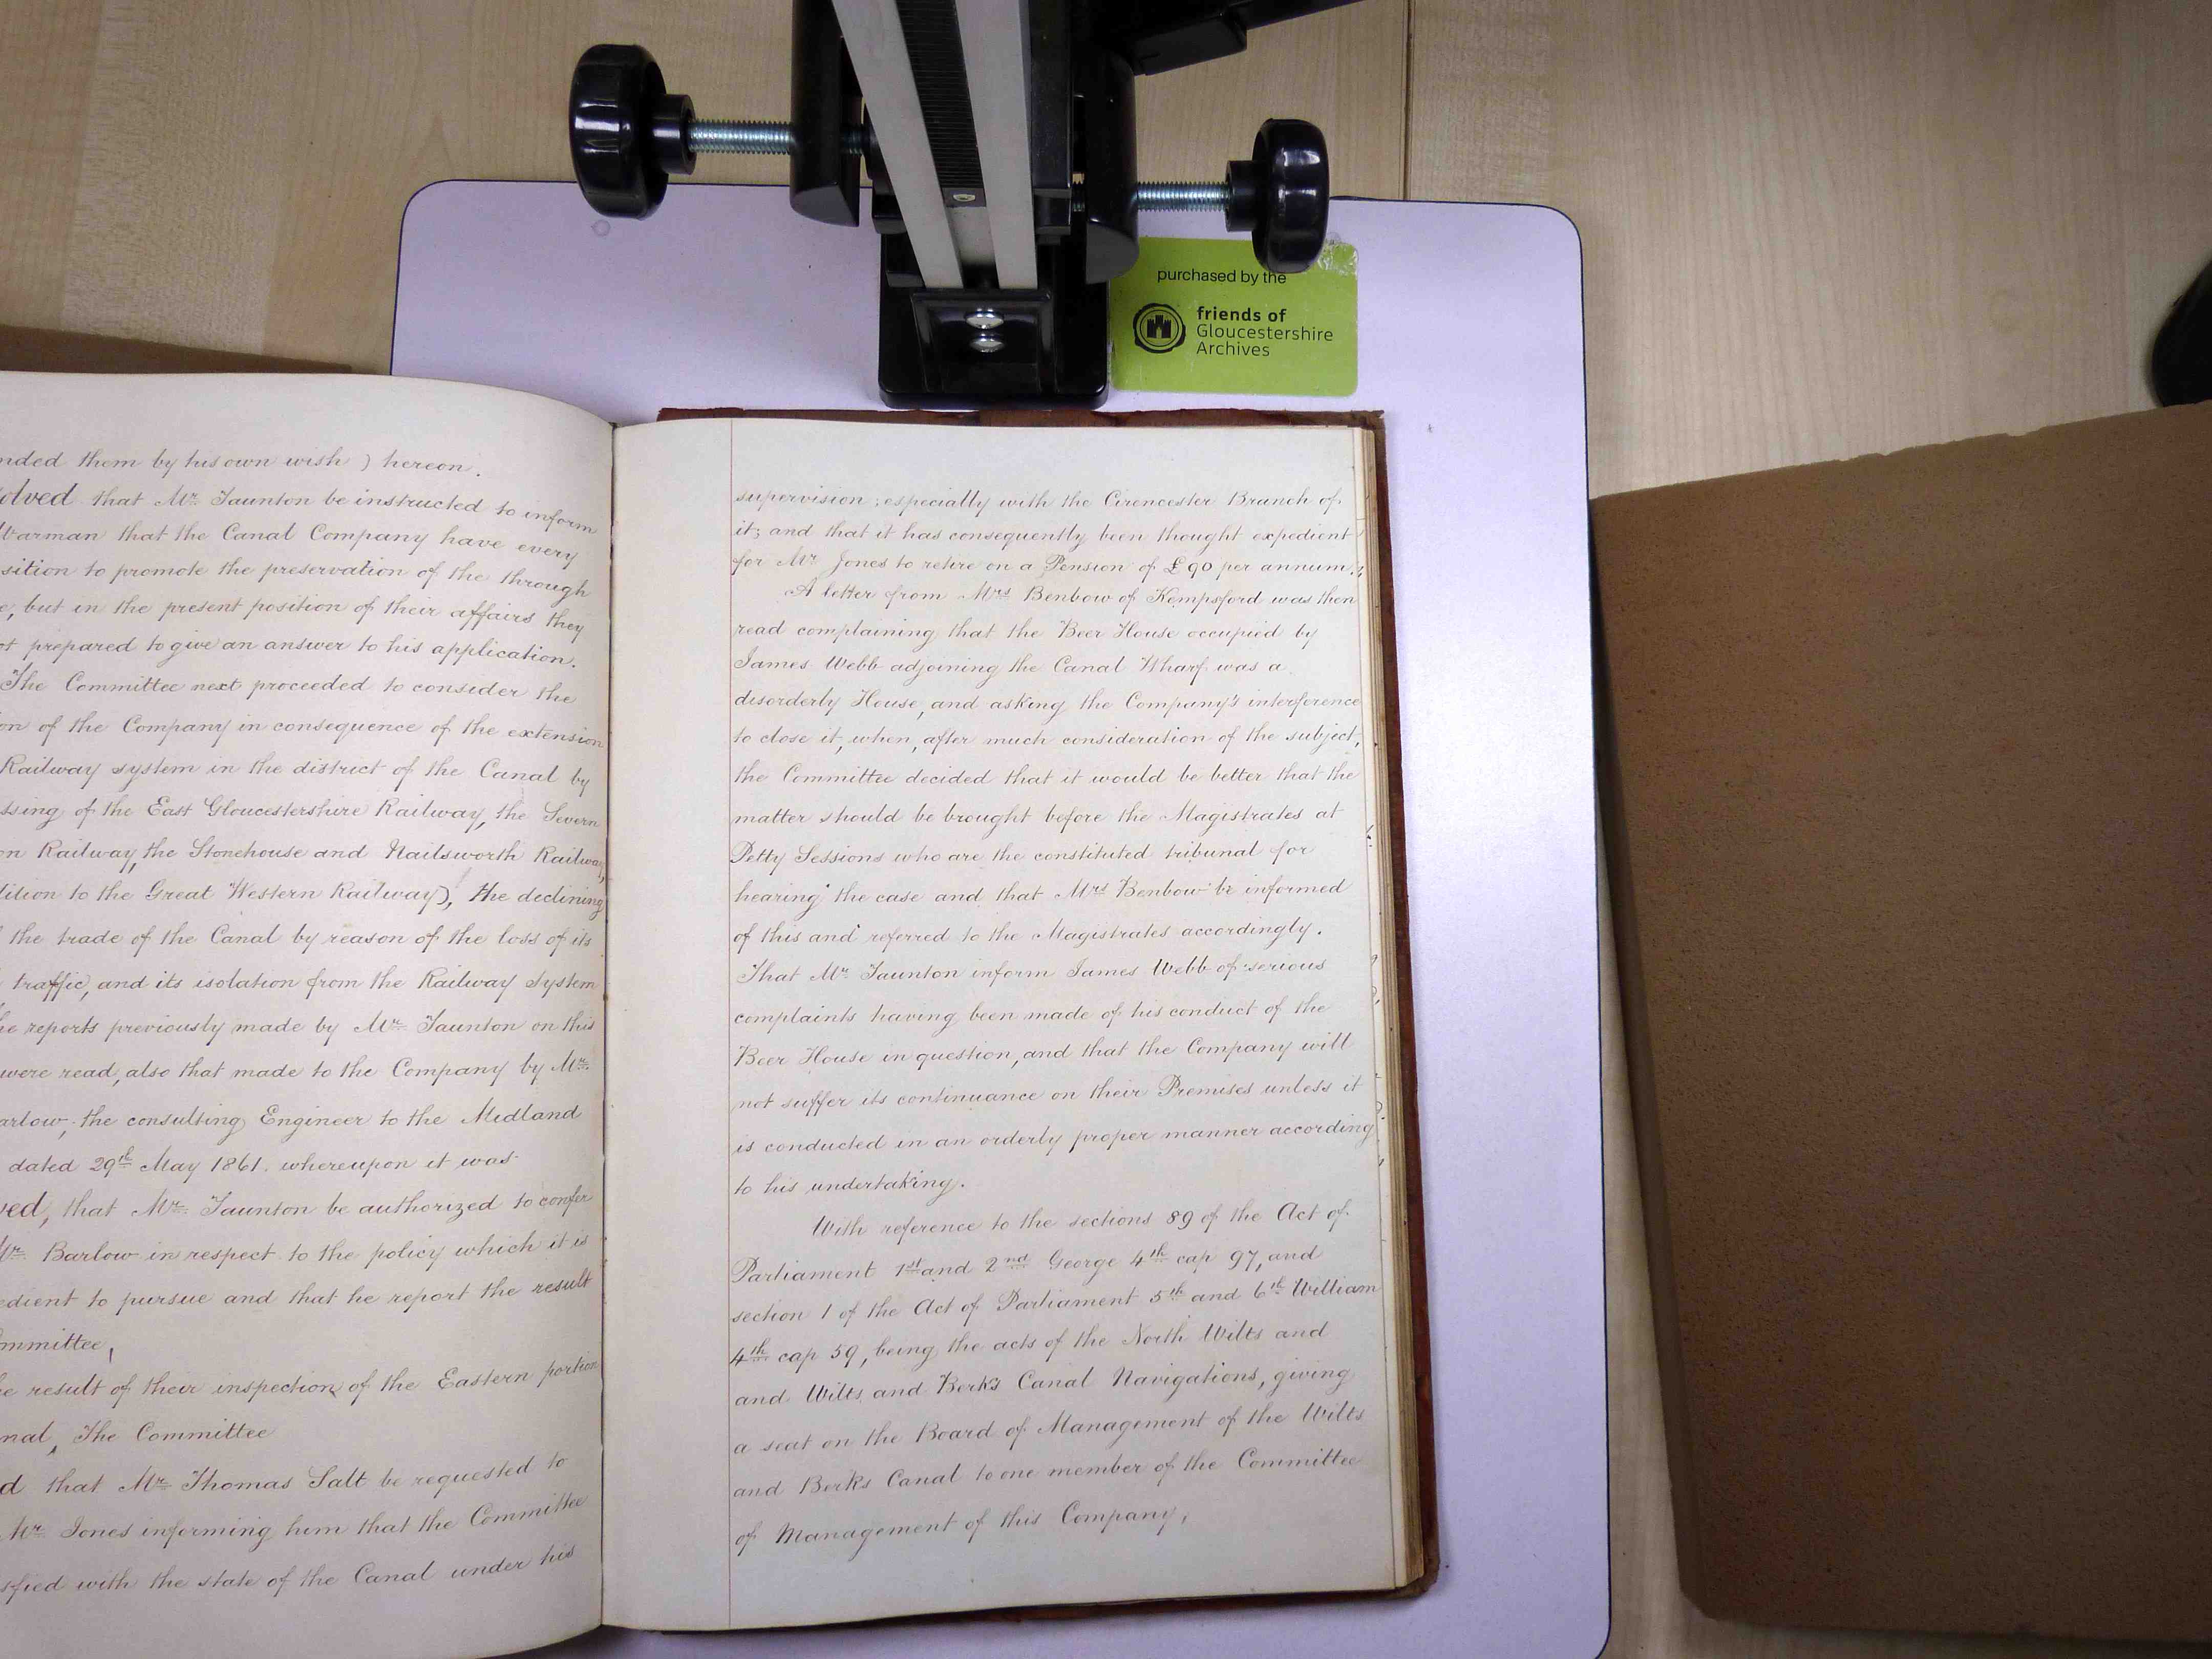 purchased by the
friends of
Gloucestershire
Archives
nded them by his own wish ) hereon.
olved that Mr. Taunton be instructed to inform
Warman that the Canal Company have every
sition to promote the preservation of the through
e, but in the present position of their affairs they
ot prepared to give an answer to his application.
The Committee next proceeded to consider the
on of the Company in consequence of the extension
Railway system in the district of the Canal by
ssing of the East Gloucestershire Railway, the Severn
on Railway, the Stonehouse and Nailsworth Railway,
dition to the Great Western Railway), the declining
the trade of the Canal by reason of the loss of its
traffic, and its isolation from the Railway System
he reports previously made by Mr. Taunton on this
were read, also that made to the Company by Mr.
arlow, the consulting Engineer to the Midland
dated 29th May 1861. whereupon it was
ved, that Mr. Taunton be authorized to confer
Mr. Barlow in respect to the policy which it is
edient to pursue and that he report the result
ommittee,
he result of their inspection of the Eastern portion
nal, The Committee
d that Mr. Thomas Salt be requested to
Mr. Jones informing him that the Committee
sfied with the state of the Canal under his
supervision; especially with the Cirencester Branch of
it; and that it has consequently been thought expedient
for Mr. Jones to retire on a Pension of £90 per annum.
A letter from Mrs Benbow of Kempsford was then
read complaining that the Beer House occupied by
James Webb adjoining the Canal Wharf was a
disorderly House, and asking the Company's interference
to close it, when, after much consideration of the subject,
the Committee decided that it would be better that the
matter should be brought before the Magistrates at
Petty Sessions who are the constituted tribunal for
hearing the case and that Mrs Benbow be informed
of this and referred to the Magistrates accordingly.
That Mr. Taunton inform James Webb of serious
complaints having been made of his conduct of the
Beer House in question, and that the Company will
not suffer its continuance on their Premises unless it
is conducted in an orderly proper manner according
to his undertaking.
With reference to the sections 89 of the Act of
Parliament 1st and 2nd George 4th cap 97, and
section 1 of the Act of Parliament 5th and 6th William
4th cap 59, being the acts of the North Wilts and
and Wilts and Berks Canal Navigations, giving
a seat on the Board of Management of the Wilts
and Berks Canal to one member of the Committee
of Management of this Company,